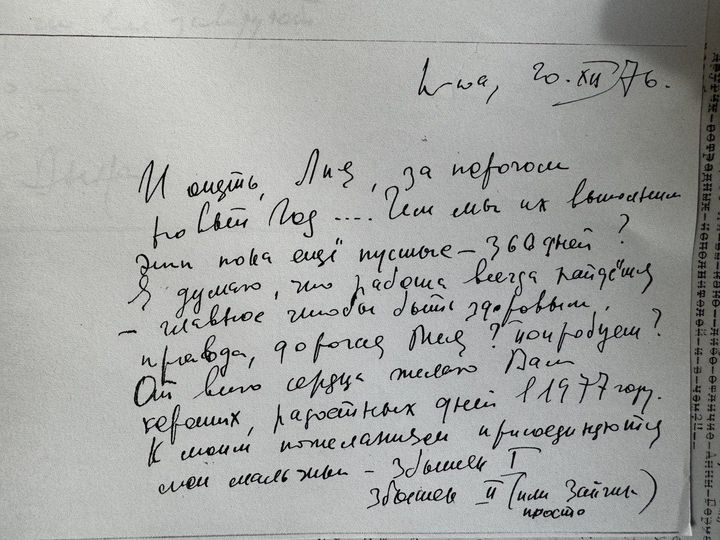 20.XII 76.
И опять, Лия, за порогом
новый Год .... Чем мы их выполним
эти пока ещё пустые – 360 дней?
Я думаю, что работа всегда найдётся
– главное чтобы быть здоровым,
правда, дорогая Лия? попробуем?
От всего сердца желаю Вам
хороших, радостных дней в 1977 году.
К моим пожеланиям присоединяются
мои мальчики – Збышек I
Збышек II (или Зайчик
просто)